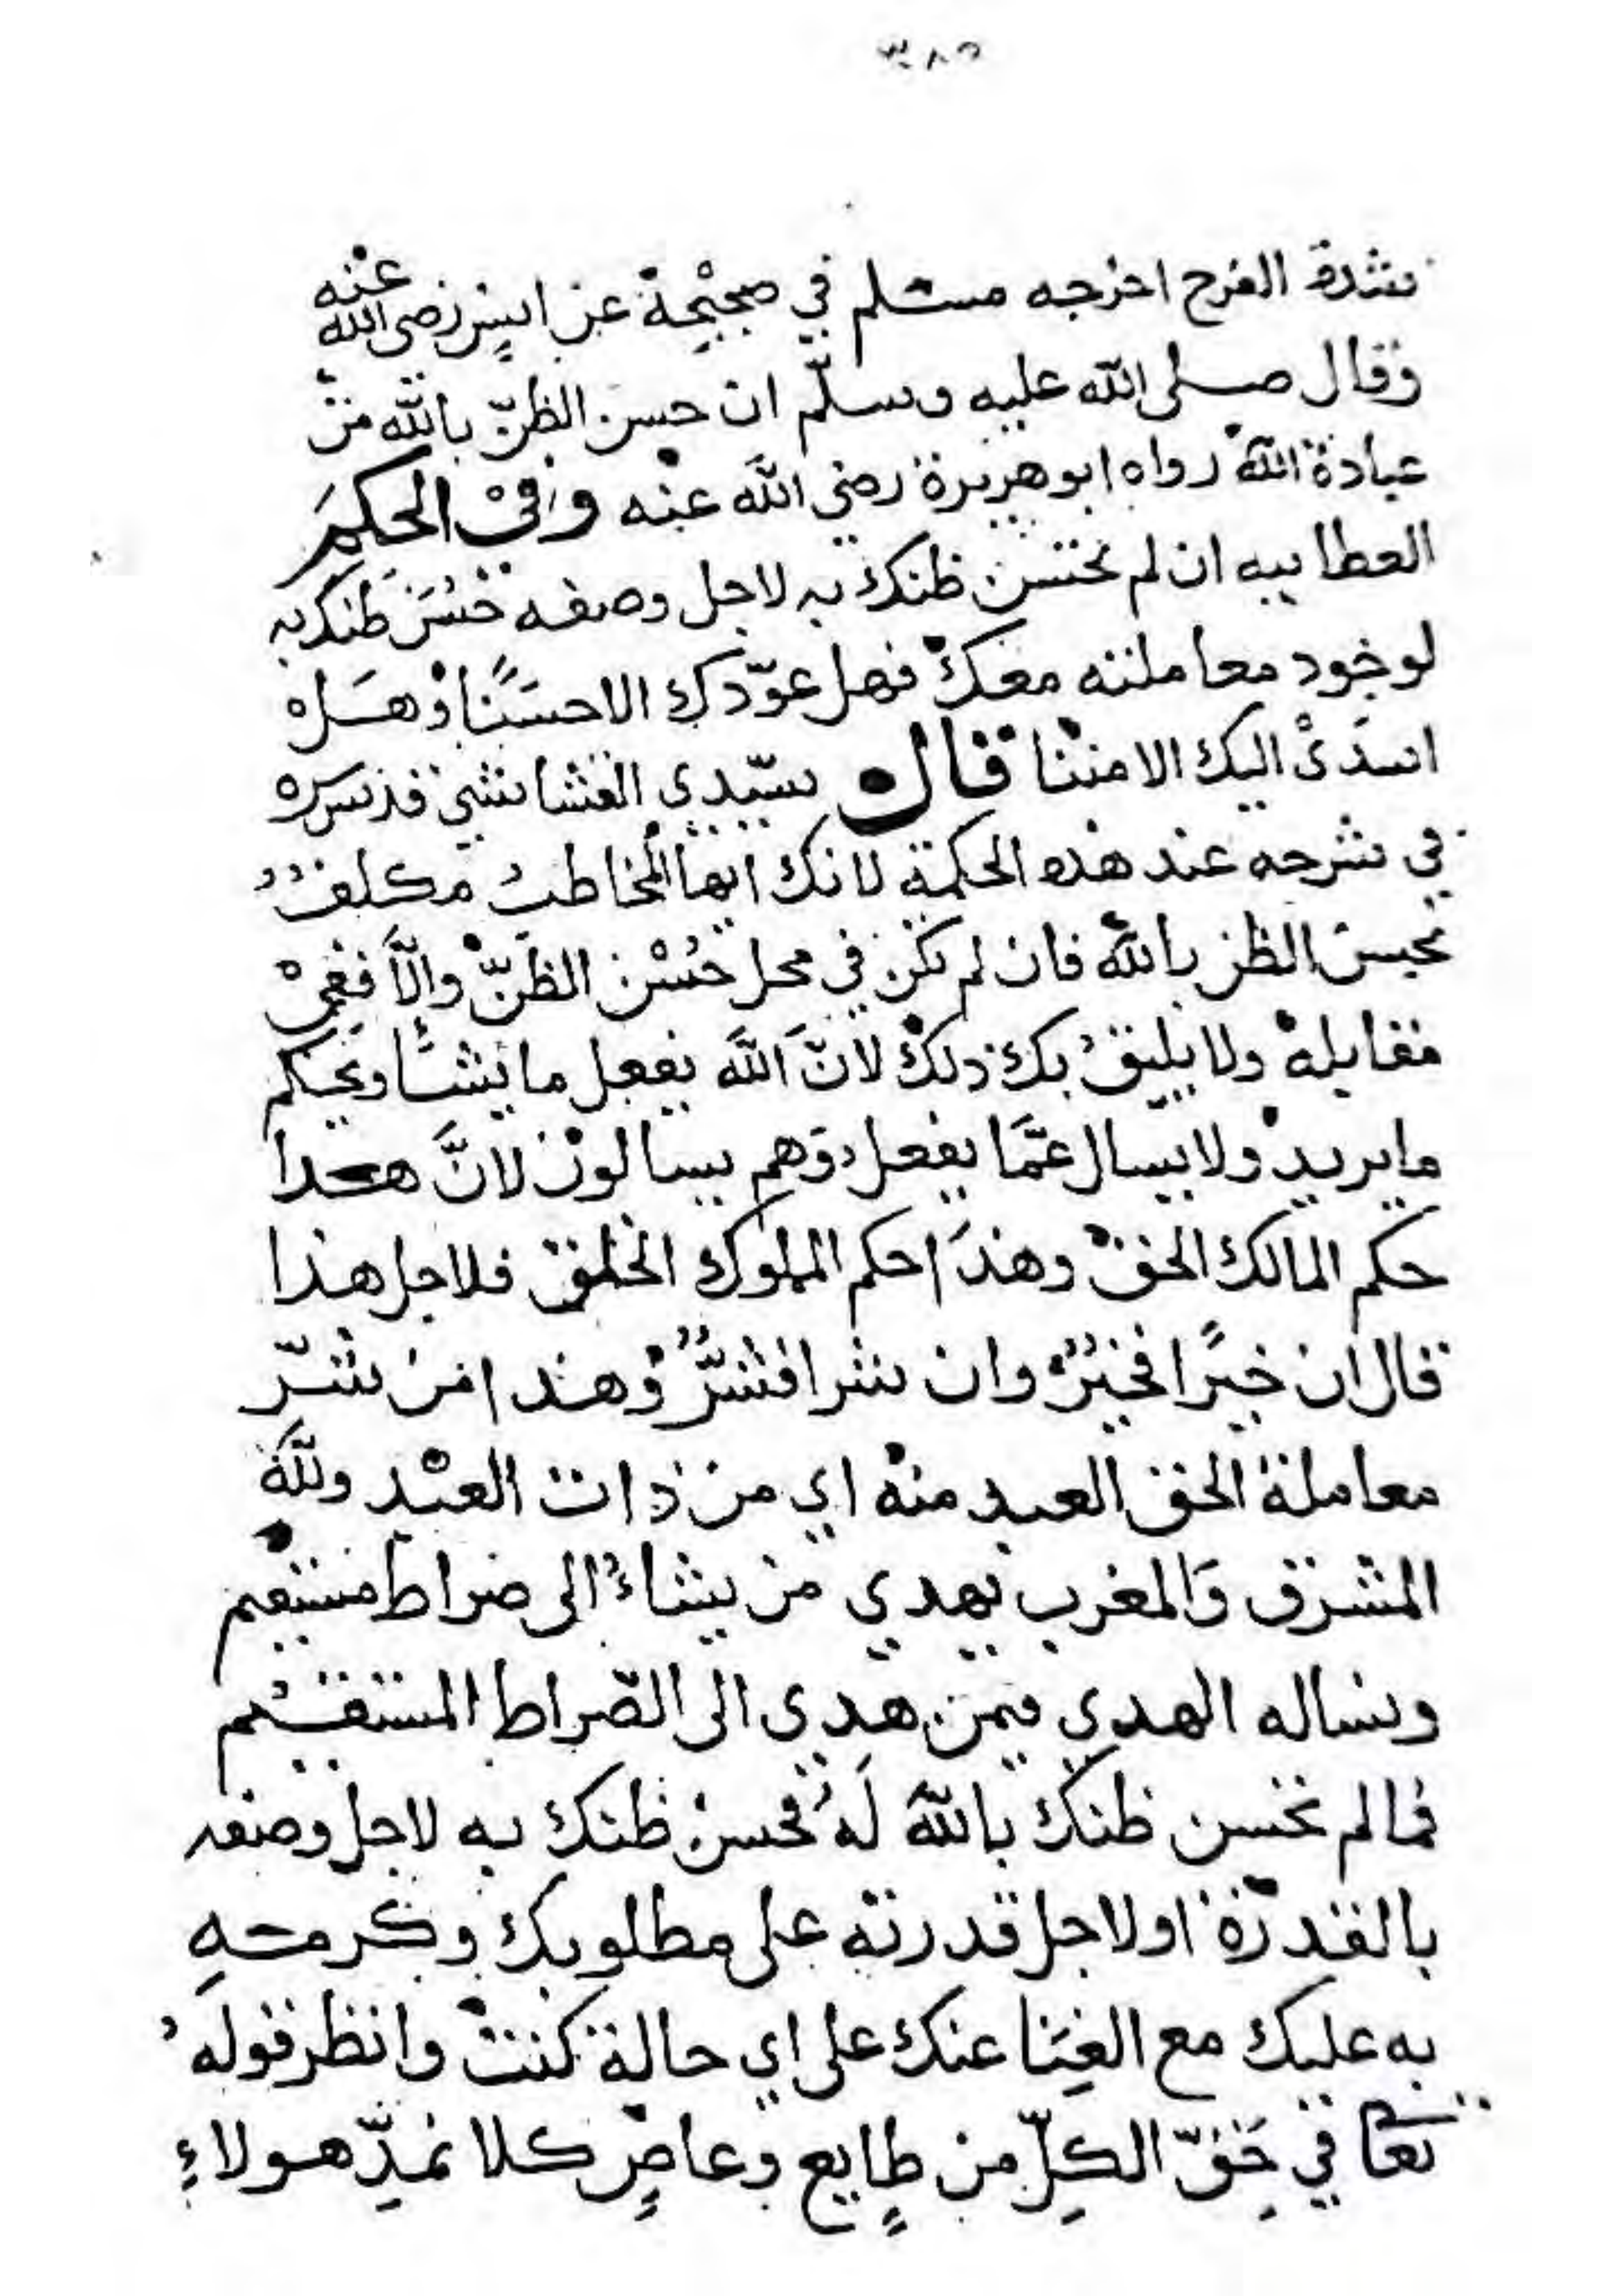 ٣٨٥
شدة الفرح اخرجه مسلم في صحيحة عن انس رضى الله عنه
وقال صلى الله عليه وسلّم ان حسن الظنّ بالله من
عبادة الله رواه ابو هريرة رضي الله عنه وفي الحكم
العطاييه ان لم تحسن ظنك به لاجل وصفه حَسّن ظنك به
لوجود معاملته معك فهل عوّدك الا حسنًا وهل
اسدى اليك الا مننا قال سيّدي القشاشي قدس سره
في شرحه عند هذه الحكمة لانك ايها المخاطب مكلف
بحسن الظن بالله فان لم تكن في محل حُسْن الظنّ والّا ففي
مقابله ولا يليق بك ذلك لانّ الله يفعل ما يشا ويحكم
ما يريد ولا يسال عمّا يفعل وهم يسالون لانّ هذا
حكم المالك الحق وهذا حكم المملوك الخلق فلاجل هذا
قال ان خيرًا فخيرٌ وان شرا فشرٌّ وهذا من شرّ
معاملة الحق العبد منه اي من ذات العبد ولله
المشرق والمغرب يهدي من يشاءُ الى صراط مستقيم
ونساله الهدي فيمن هدي الى الصّراط المستقيم
فما لم تحسن ظنك بالله لهُ فحسن ظنك به لاجل وصفه
بالقدرة او لاجل قدرته على مطلوبك وكرمه
به عليك مع الغِنا عنك على اي حالة كنت وانظر قولهُ
تعا في حَقّ الكلّ من طايع وعاصٍ كلا نمدّ هولاءِ